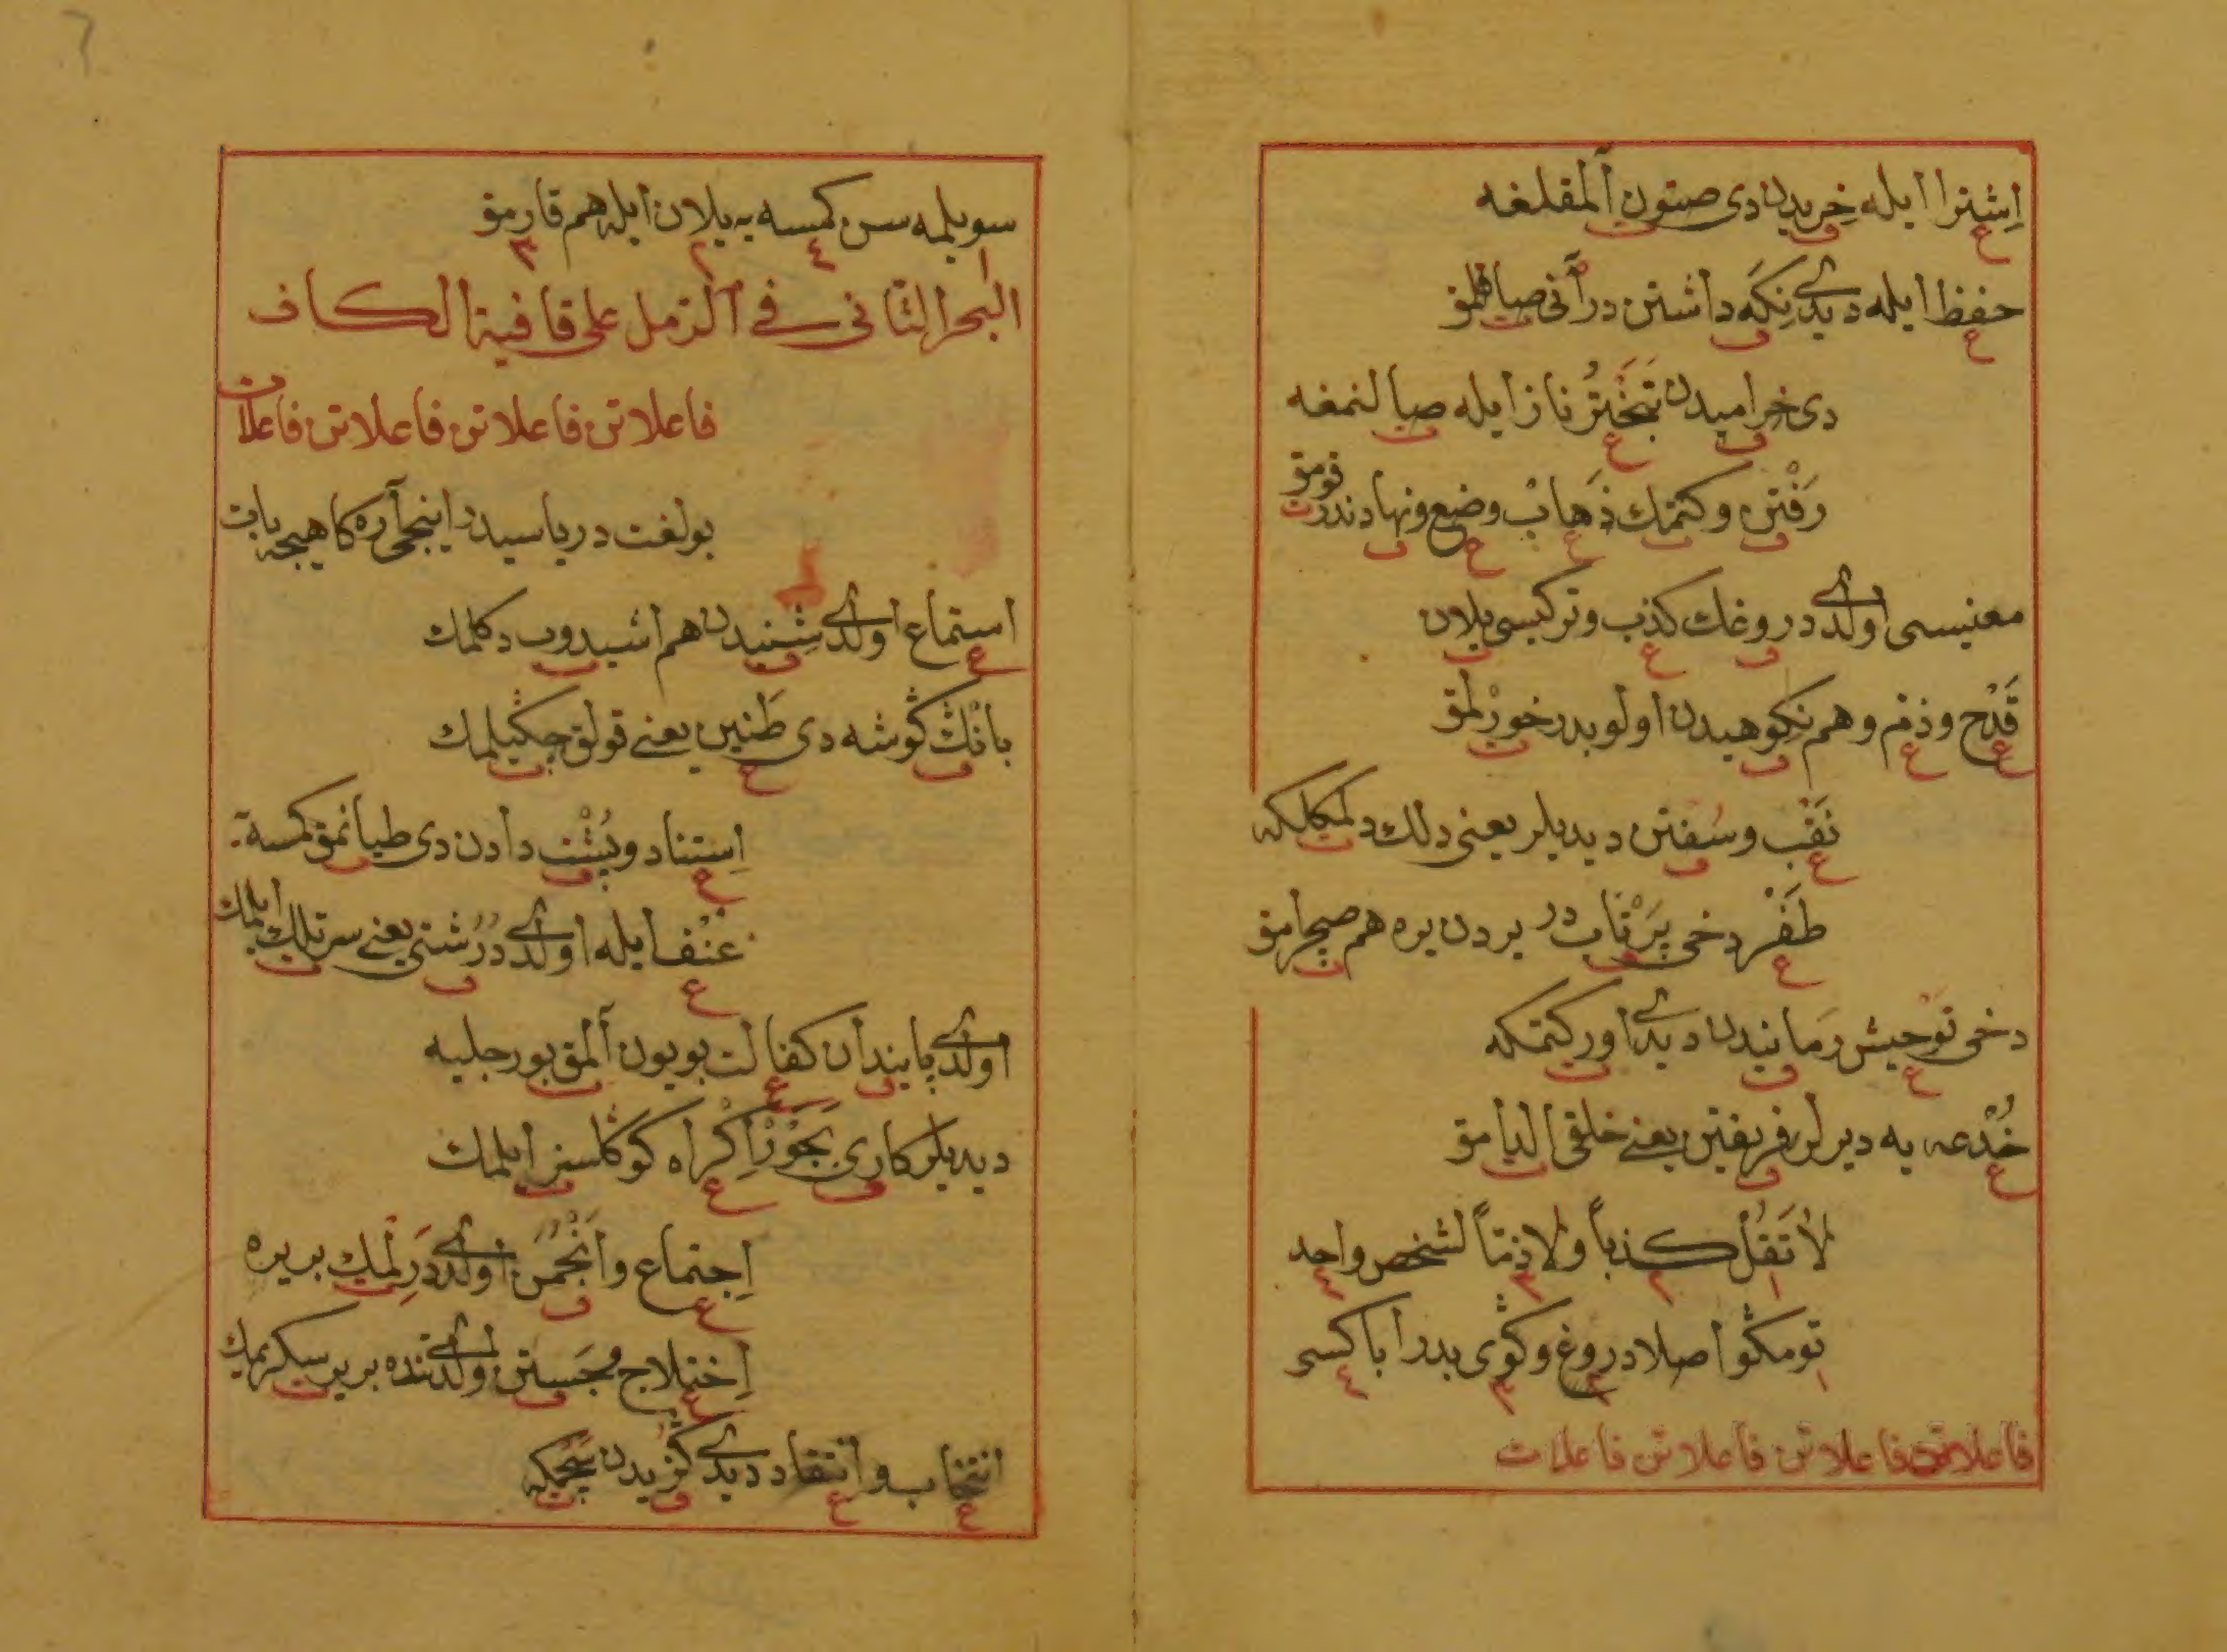 اِشترا ایله خریدن دی صتون آلمقلغه
حفظ ایله دیدی نِکَه داشتن درآنی صاقلمق
دی خرامیدن تَبَخْتُر ناز ایله صالنمغه
رَفْتن و کتمك ذَهابْ وضع و نهادندر قومق
معنیسی اولدی دروغك کذب و ترکیسی یلان
قَدْح و ذم و هم نِکوهیدن اولوبدر خورلمق
نَقْب و سُفتن دیدیلر یعنی دلك دلمکلکه
طَفْر دخی پَرْتاب در یردن یره هم صچرامق
دخی تَوْحیش رَمانیدن دیدی اورکتمکه
خُدْعه یه دیرلر فریفتن یعنی خلقی الدامق
لاٰ تَقُلْ کذباً ولا ذمّاً لشخص واحد
تو مکو اصلا دروغ وکوی بدرا با کسی
فاعلاتن فاعلاتن فاعلاتن فاعلات
سویلمه سن کمسه یه یلان ایله هم قارمق
البحر الثانی فی الرمل علی قافیة الکاف
فاعلاتن فاعلاتن فاعلاتن فاعلات
بولغت دریاسیدر اینجی آره کاهیجه بات
استماع اولدی شنیدن هم اشیدوب دکلمك
بانك کوشه دی طَنین یعنی قولق چکیلمك
اِستناد و پُشْت دادن دی طیانمق کمسه
عُنْف ایله اولدی دُرُشتی یعنی سرتلك ایلمك
اولدی پایندان کفالت بویون آلمق بورجلیه
دیدیلر کاری بَجَوْر اِکْراه کوکلسز ایلمك
اِجتماع و اَنْجُمَن اولدی دَرِلْمك بریره
اِختلاج و جَستن اولدی تنده بریر سکریمك
انتخاب و انتقاد دیدی کُزیدن سَچمکه